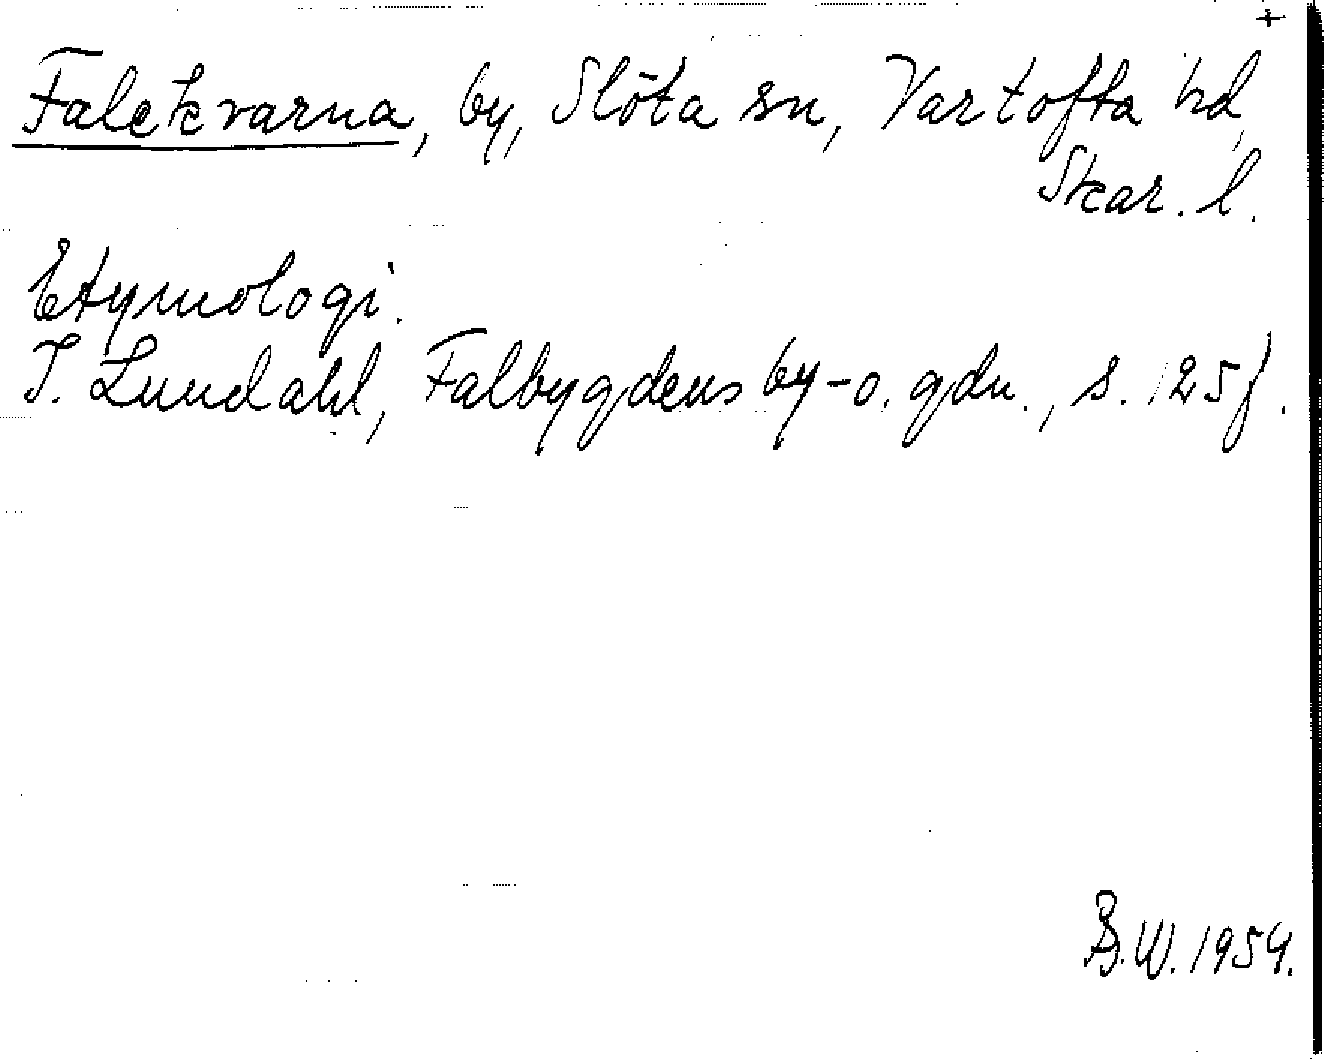 +
Falekvarna, by, Slöta sn, Vartofta hd,
Skar. l.
Etymologi.
I. Lundahl, Falbygdens by-o. gdn., s. 125 f.
B.W. 1959.